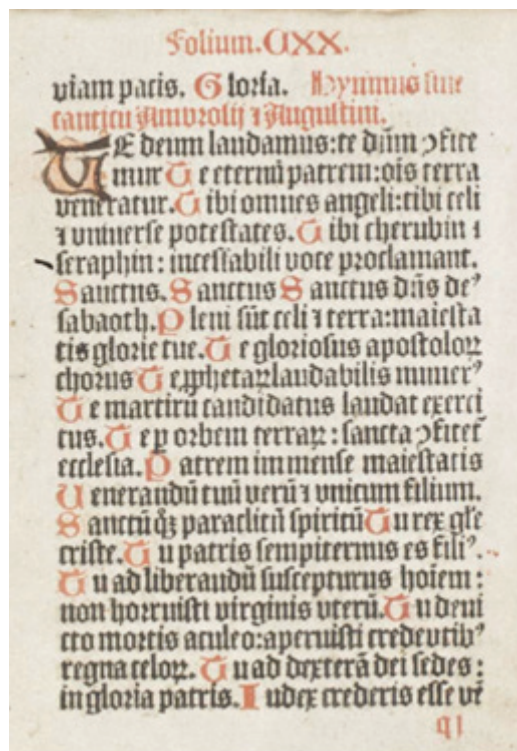 Folium. CXX.
viam pacis. Gloria. Hymnus sive
cantici Ambrosij ⁊ Augustini.
TE deum laudamus: te dñm ꝯfite
mur Te eternū patrem: oĩs terra
veneratur. Tibi omnes angeli: tibi celi
⁊ vniuerse potestates. Tibi cherubin ⁊
seraphin: incessabili voce proclamant.
Sanctus. Sanctus Sanctus dñs deꝰ
sabaoth. Pleni sūt celi ⁊ terra: maiesta
tis glorie tue. Te gloriosus apostoloꝝ
chorus Te ꝓphetaꝝ laudabilis numerꝰ
Te martirū candidatus laudat exerci
tus. Te ꝑ orbem terraꝝ: sancta ꝯfitet᷑
ecclesia. Patrem immense maiestatis
Uenerandū tuū verū ⁊ vnicum filium.
Sanctū qꝫ paraclitū spiritū Tu rex gl̃e
criste. Tu patris sempiternus es filiꝰ.
Tu ad liberandū suscepturus hoĩem:
non horruisti virginis vterū. Tu deui
cto mortis aculeo: aperuisti credentibꝰ
regna celoꝝ. Tu ad dexterā dei sedes:
in gloria patris. Iudex crederis esse vē